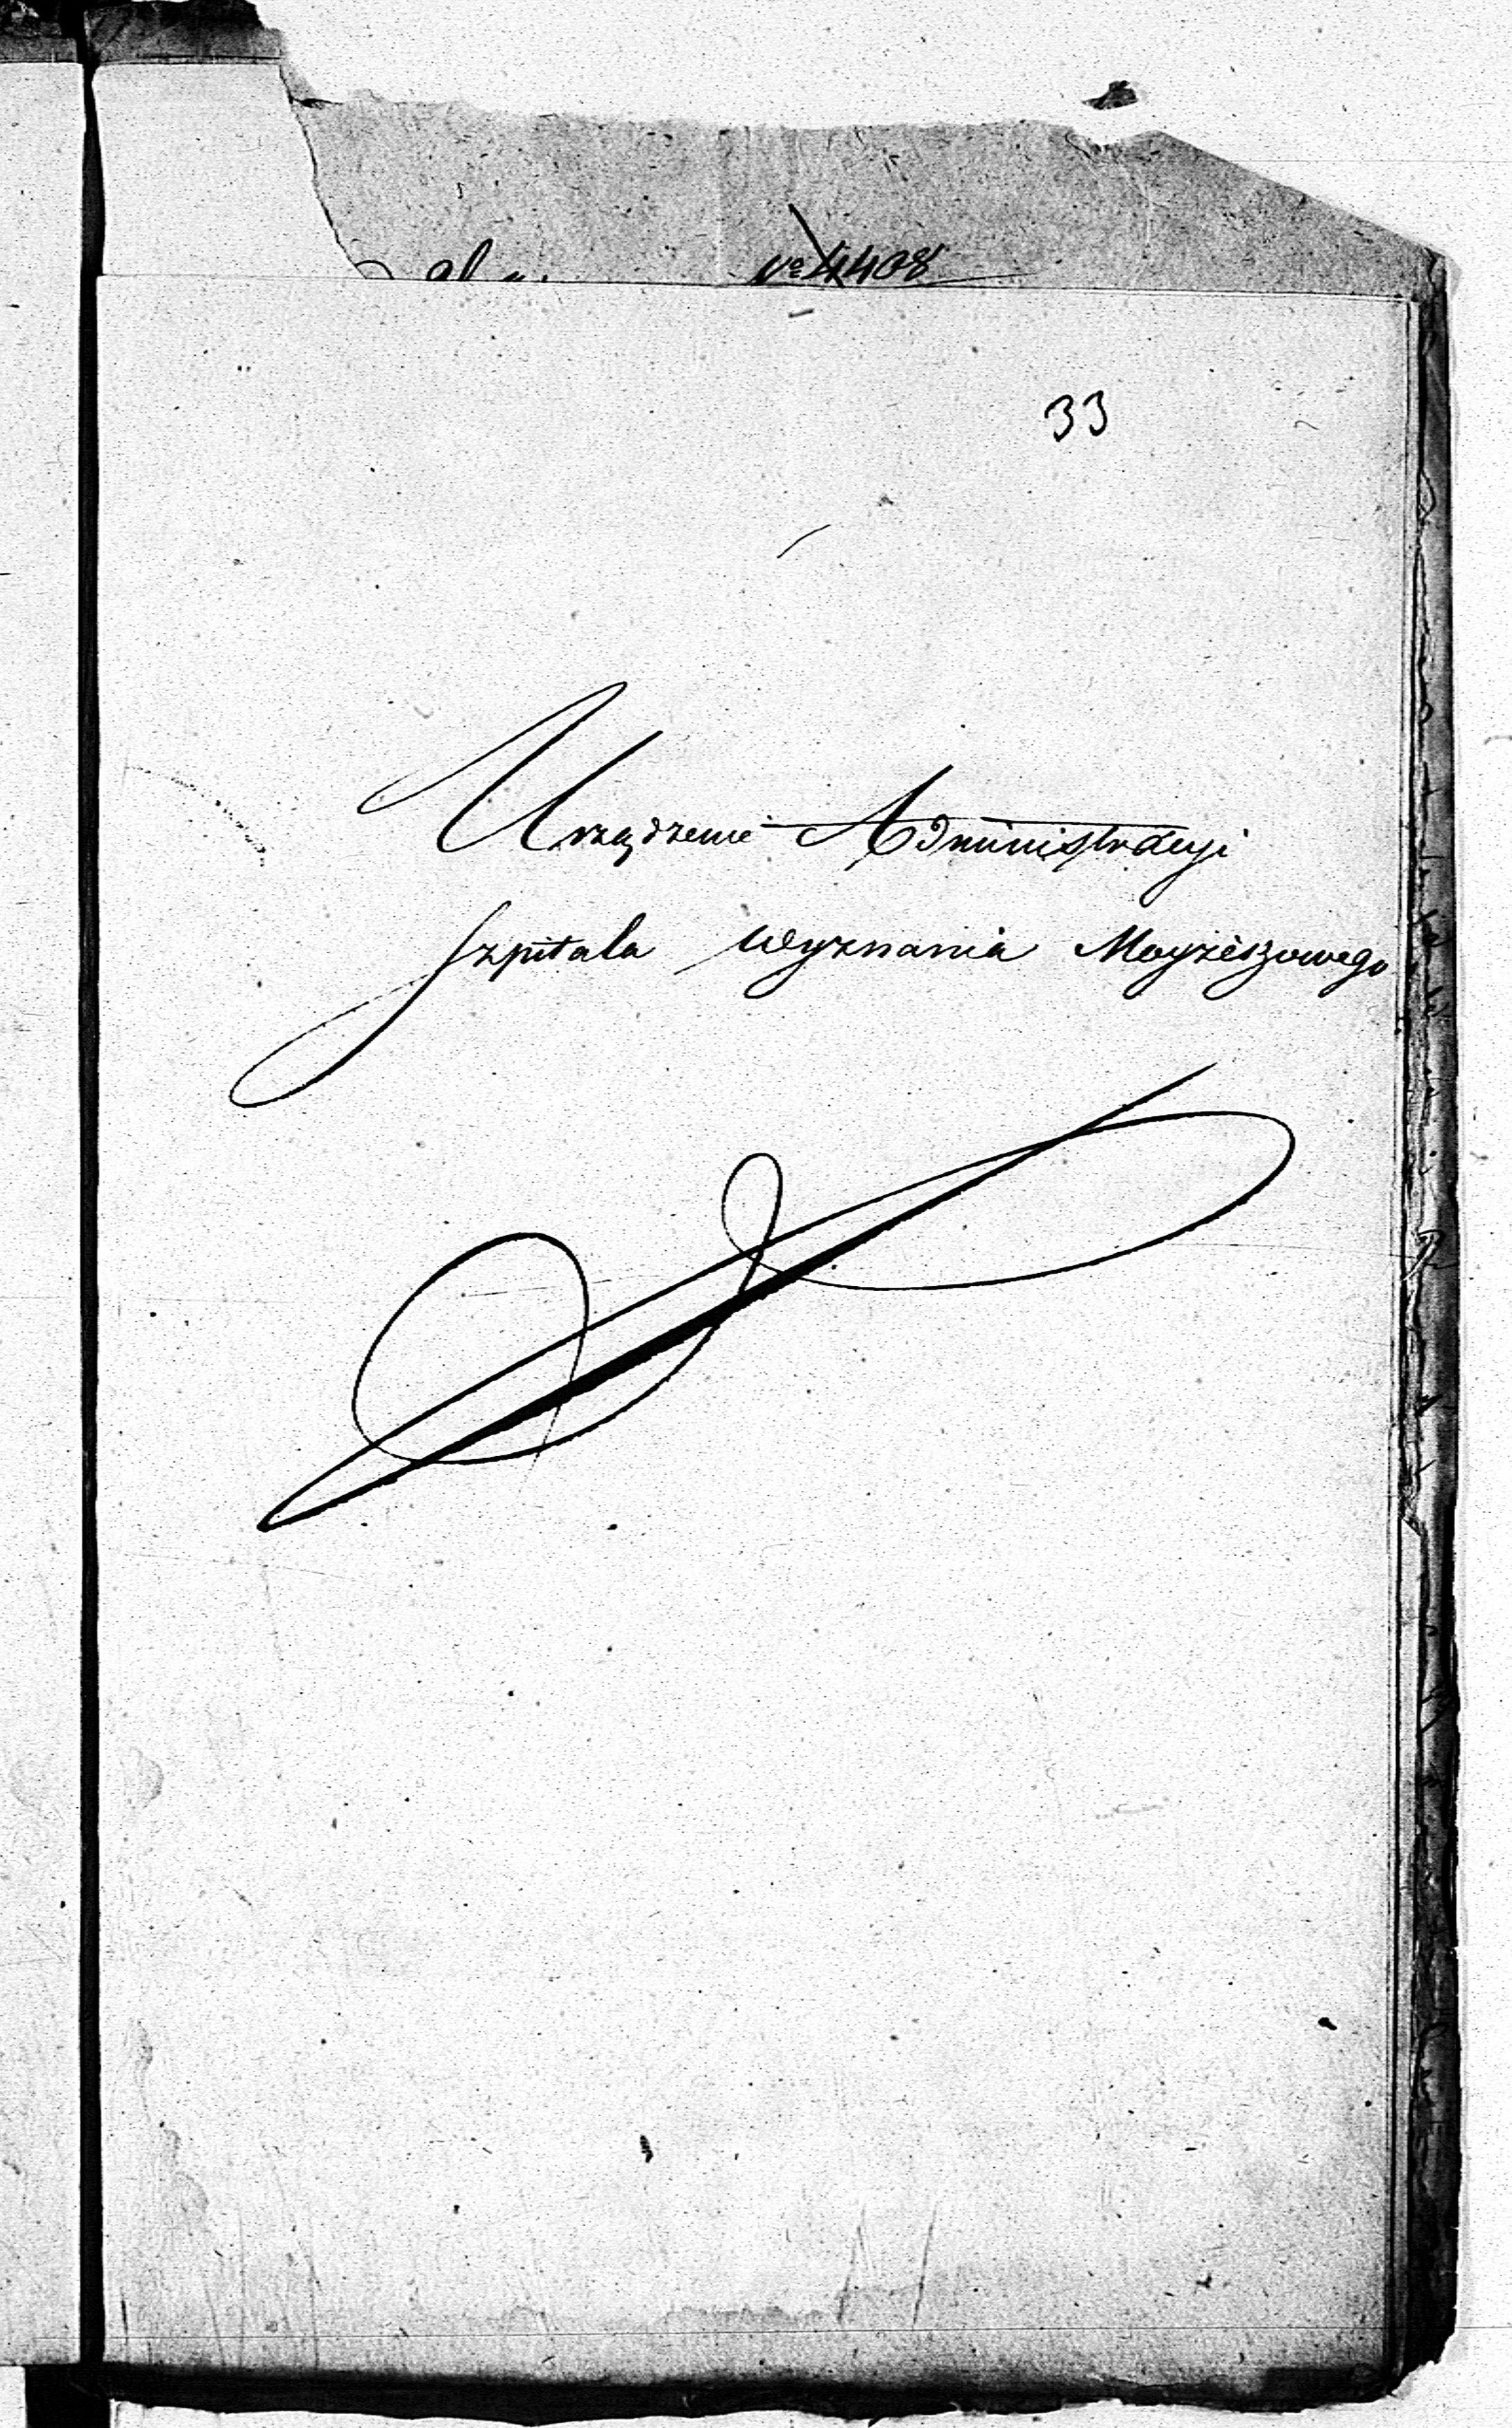 № 4408
33
Urządzenie Administracyji
Szpitala Wyznania Moyżeszowego